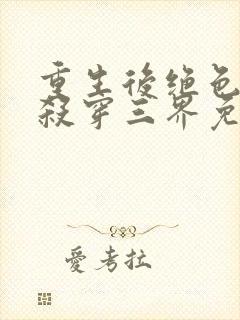 重生後绝色
殺穿三界免
愛考拉